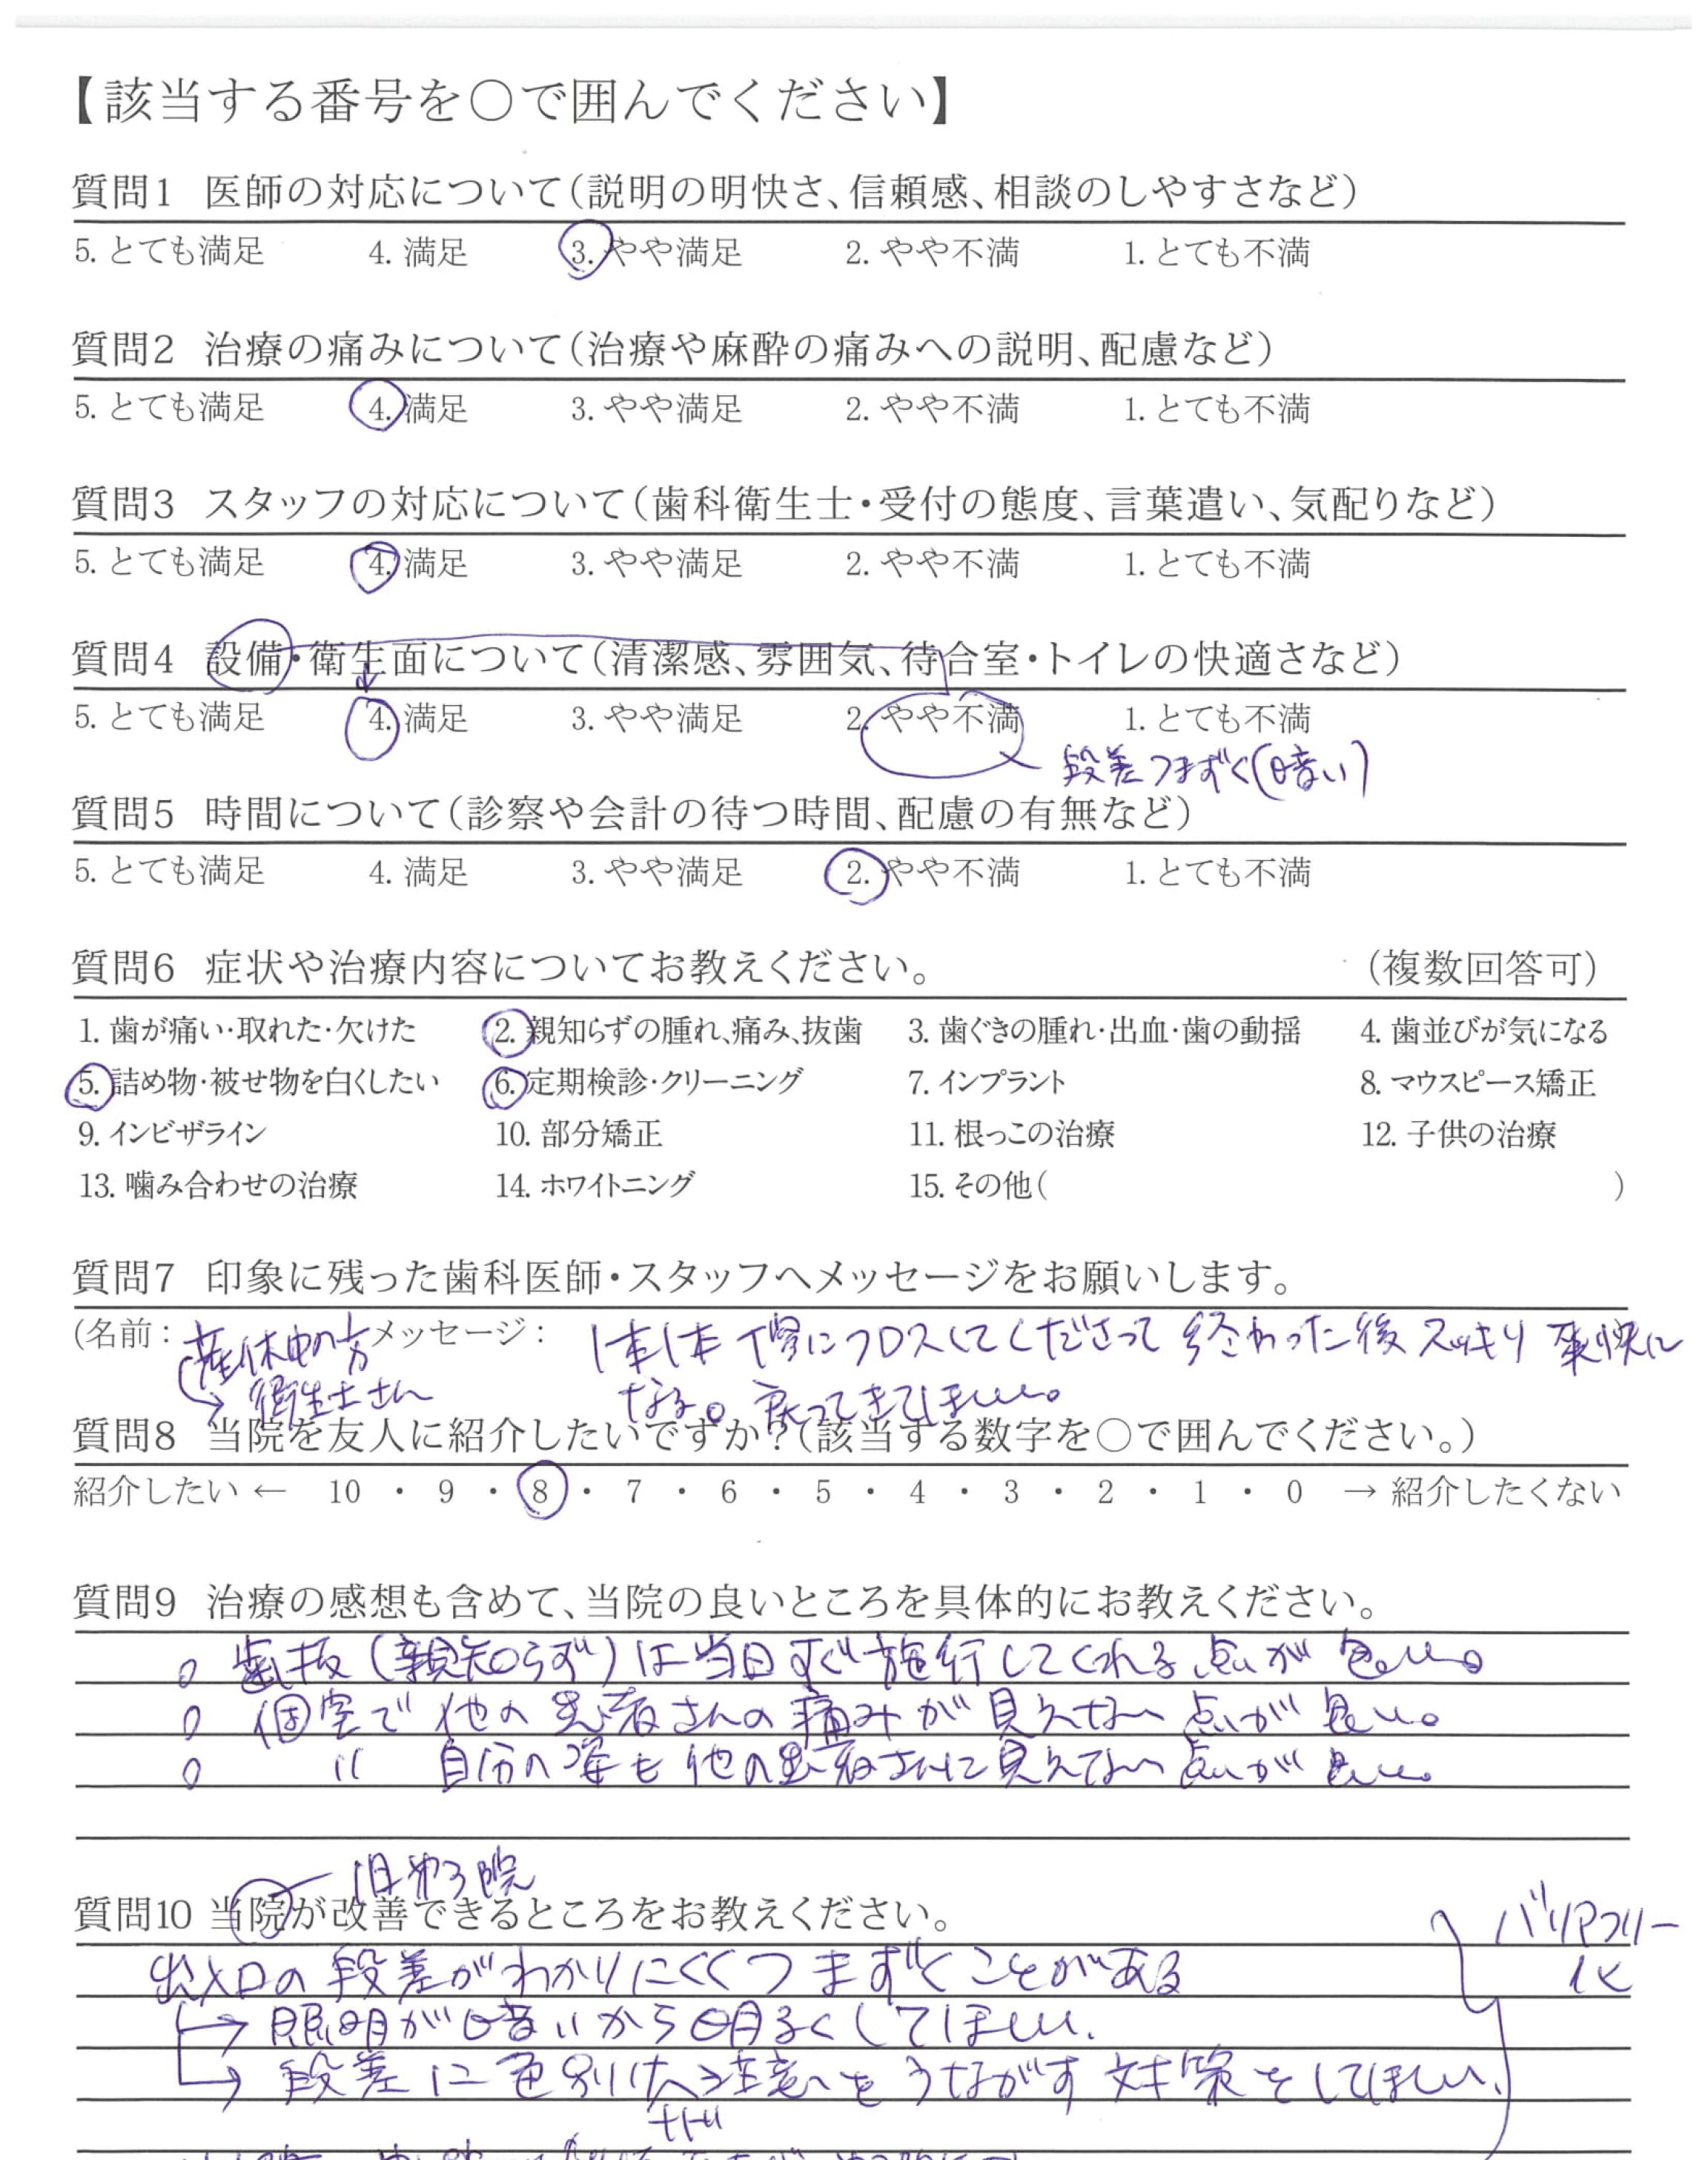 【該当する番号を○で囲んでください】
質問1 医師の対応について(説明の明快さ、信頼感、相談のしやすさなど)
5. とても満足 4. 満足 3. やや満足 2. やや不満 1. とても不満
質問2 治療の痛みについて(治療や麻酔の痛みへの説明、配慮など)
5. とても満足 4. 満足 3. やや満足 2. やや不満 1. とても不満
質問3 スタッフの対応について(歯科衛生士・受付の態度、言葉遣い、気配りなど)
5. とても満足 4. 満足 3. やや満足 2. やや不満 1. とても不満
質問4 設備・衛生面について(清潔感、雰囲気、待合室・トイレの快適さなど)
5. とても満足 4. 満足 3. やや満足 2. やや不満 1. とても不満
段差つまずく(暗い)
質問5 時間について(診察や会計の待つ時間、配慮の有無など)
5. とても満足 4. 満足 3. やや満足 2. やや不満 1. とても不満
質問6 症状や治療内容についてお教えください。 (複数回答可)
1. 歯が痛い・取れた・欠けた 2. 親知らずの腫れ、痛み、抜歯 3. 歯ぐきの腫れ・出血・歯の動揺 4. 歯並びが気になる
5. 詰め物・被せ物を白くしたい 6. 定期検診・クリーニング 7. インプラント 8. マウスピース矯正
9. インビザライン 10. 部分矯正 11. 根っこの治療 12. 子供の治療
13. 噛み合わせの治療 14. ホワイトニング 15. その他( )
質問7 印象に残った歯科医師・スタッフへメッセージをお願いします。
(名前: 産休中の方 メッセージ: 1本1本丁寧にフロスしてくださって終わった後スッキリ爽快に
→衛生士さん なる。戻ってきてほしい。
質問8 当院を友人に紹介したいですか?(該当する数字を○で囲んでください。)
紹介したい ← 10 ・ 9 ・ 8 ・ 7 ・ 6 ・ 5 ・ 4 ・ 3 ・ 2 ・ 1 ・ 0 → 紹介したくない
質問9 治療の感想も含めて、当院の良いところを具体的にお教えください。
○ 歯抜(親知らず)は当日すぐ施行してくれる点が良い。
○ 個室で他の患者さんの痛みが見えない点が良い。
○ 〃 自分の姿も他の患者さんに見えない点が良い。
質問10 当院が改善できるところをお教えください。
バリアフリー
化
出入口の段差がわかりにくくつまずくことがある
→ 照明が暗いから明るくしてほしい.
→ 段差に色別け注意をうながす対策をしてほしい.
など